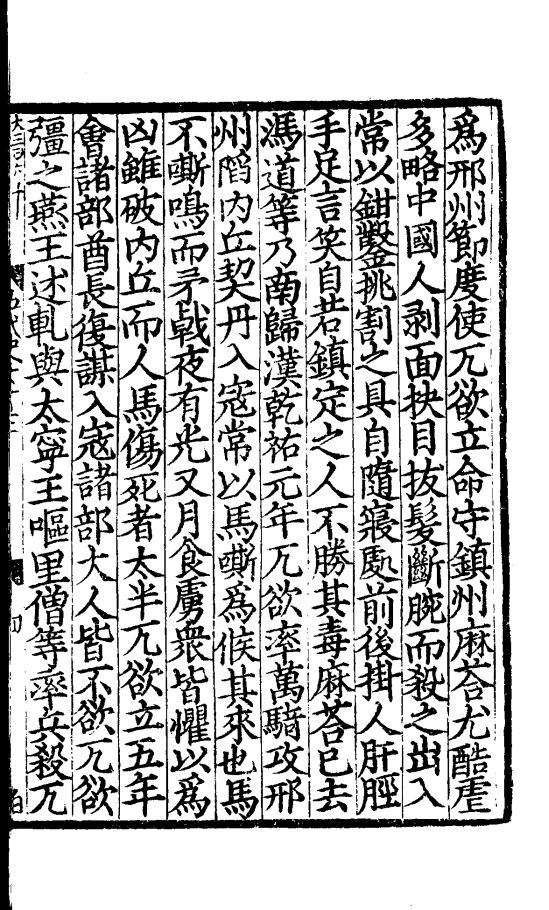 爲邢州節度使兀欲立命守鎮州麻荅尤酷虐
多略中國人剥面抉目拔髮斷腕而殺之出入
常以鉗鑿挑割之具自隨寢處前後掛人肝脛
手足言笑自若鎮定之人不勝其毒麻荅已去
馮道等乃南歸漢乾祐元年兀欲率萬騎攻邢
州陷内丘契丹入寇常以馬嘶爲候其來也馬
不嘶鳴而矛戟夜有光又月食虜衆皆懼以爲
凶雖破内丘而人馬傷死者太半兀欲立五年
會諸部酋長復謀入寇諸部大人皆不欲兀欲
彊之燕王述軋與太寧王嘔里僧等率兵殺兀